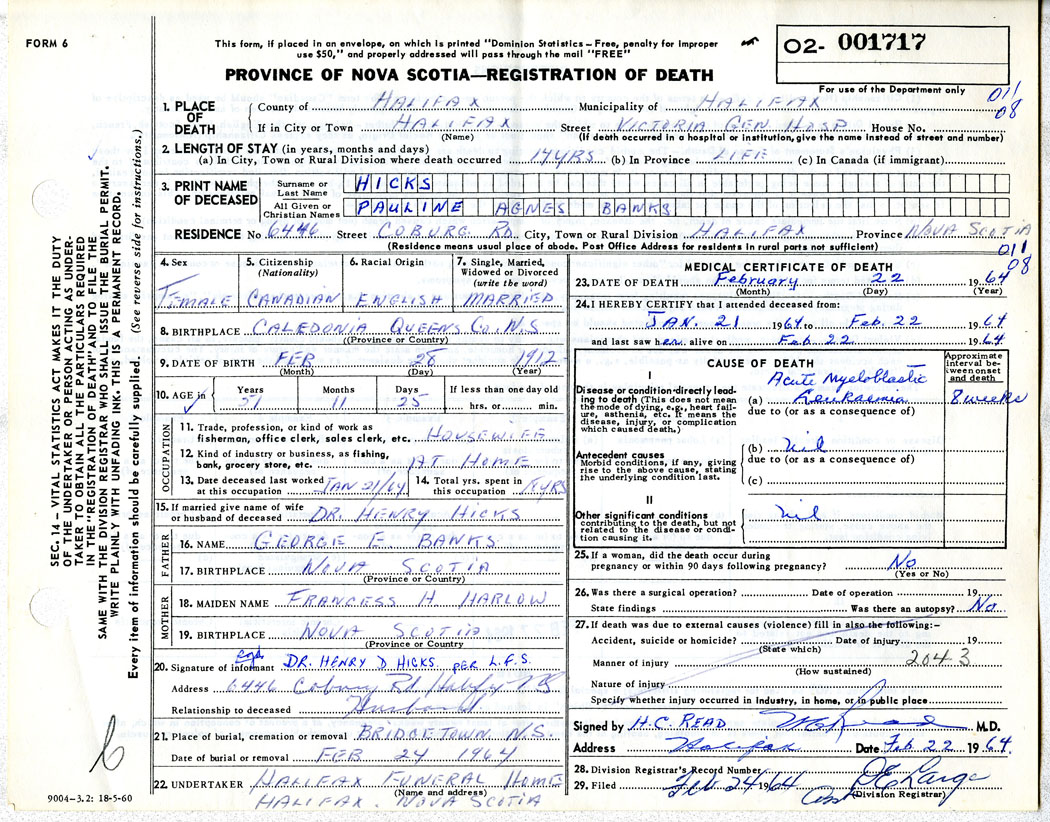 FORM 6
This form, if placed in an envelope, on which is printed "Dominion Statistics – Free, penalty for improper
use $50," and properly addressed will pass through the mail "FREE"
O2- 001717
For use of the Department only
PROVINCE OF NOVA SCOTIA—REGISTRATION OF DEATH
011
08
1. PLACE OF DEATH
County of HALIFAX Municipality of HALIFAX
If in City or Town HALIFAX (Name) Street VICTORIA GEN HOSP House No.
(If death occurred in a hospital or institution, give the name instead of street and number)
2. LENGTH OF STAY (in years, months and days)
(a) In City, Town or Rural Division where death occurred 14YRS (b) In Province LIFE (c) In Canada (if immigrant)
3. PRINT NAME OF DECEASED
Surname or Last Name HICKS
All Given or Christian Names PAULINE AGNES BANKS
RESIDENCE No 6446 Street COBURG RD. City, Town or Rural Division HALIFAX Province NOVA SCOTIA
(Residence means usual place of abode. Post Office Address for residents in rural parts not sufficient)
011
08
4. Sex FEMALE
5. Citizenship (Nationality) CANADIAN
6. Racial Origin ENGLISH
7. Single, Married, Widowed or Divorced (write the word) MARRIED
8. BIRTHPLACE CALEDONIA QUEENS Co. N.S
((Province or Country)
9. DATE OF BIRTH FEB 28 1912
(Month) (Day) (Year)
10. AGE in Years 51 Months 11 Days 25 If less than one day old hrs. or min.
OCCUPATION
11. Trade, profession, or kind of work as
fisherman, office clerk, sales clerk, etc. HOUSEWIFE
12. Kind of industry or business, as fishing,
bank, grocery store, etc. AT HOME
13. Date deceased last worked at this occupation JAN 21/64
14. Total yrs. spent in this occupation YRS
15. If married give name of wife
or husband of deceased DR. HENRY HICKS
FATHER
16. NAME GEORGE E. BANKS
17. BIRTHPLACE NOVA SCOTIA
(Province or Country)
MOTHER
18. MAIDEN NAME FRANCESS H HARLOW
19. BIRTHPLACE NOVA SCOTIA
(Province or Country
20. Signature of informant Sgd DR. HENRY D HICKS PER L.F.S.
Address 6446 Coburg Rd Halifx NS
Relationship to deceased Husband
21. Place of burial, cremation or removal BRIDGETOWN N.S.
Date of burial or removal FEB 24 1964
22. UNDERTAKER HALIFAX FUNERAL HOME
(Name and address)
HALIFAX. NOVA SCOTIA
9004–3.2: 18-5-60
MEDICAL CERTIFICATE OF DEATH
23. DATE OF DEATH February 22 1964
(Month) (Day) (Year)
24. I HEREBY CERTIFY that I attended deceased from:
JAN. 21 1964 to Feb. 22 1964
and last saw her alive on Feb 22 1964
CAUSE OF DEATH
Approximate interval between onset and death
I
Disease or condition directly leading to death (This does not mean the mode of dying, e.g., heart failure, asthenia, etc. It means the disease, injury, or complication which caused death.)
(a) Acute Myeloblastic Leukaemia 8 weeks
due to (or as a consequence of)
Antecedent causes
Morbid conditions, if any, giving rise to the above cause, stating the underlying condition last.
(b) nil
due to (or as a consequence of)
(c)
II
Other significant conditions
contributing to the death, but not related to the disease or condition causing it.
nil
25. If a woman, did the death occur during
pregnancy or within 90 days following pregnancy? No
(Yes or No)
26. Was there a surgical operation? Date of operation 19
State findings Was there an autopsy? No
27. If death was due to external causes (violence) fill in also the following:–
Accident, suicide or homicide? Date of injury 19
(State which)
Manner of injury 2043
(How sustained)
Nature of injury
Specify whether injury occurred in Industry, in home, or in public place
Signed by H.C. READ M.D.
Address Halifax Date Feb 22 1964.
28. Division Registrar's Record Number
29. Filed Feb 24 1964
(Division Registrar)
SEC. 14 – VITAL STATISTICS ACT MAKES IT THE DUTY
OF THE UNDERTAKER OR PERSON ACTING AS UNDER-
TAKER TO OBTAIN ALL THE PARTICULARS REQUIRED
IN THE "REGISTRATION OF DEATH" AND TO FILE THE
SAME WITH THE DIVISION REGISTRAR WHO SHALL ISSUE THE BURIAL PERMIT.
WRITE PLAINLY WITH UNFADING INK. THIS IS A PERMANENT RECORD.
Every item of information should be carefully supplied. (See reverse side for instructions.)